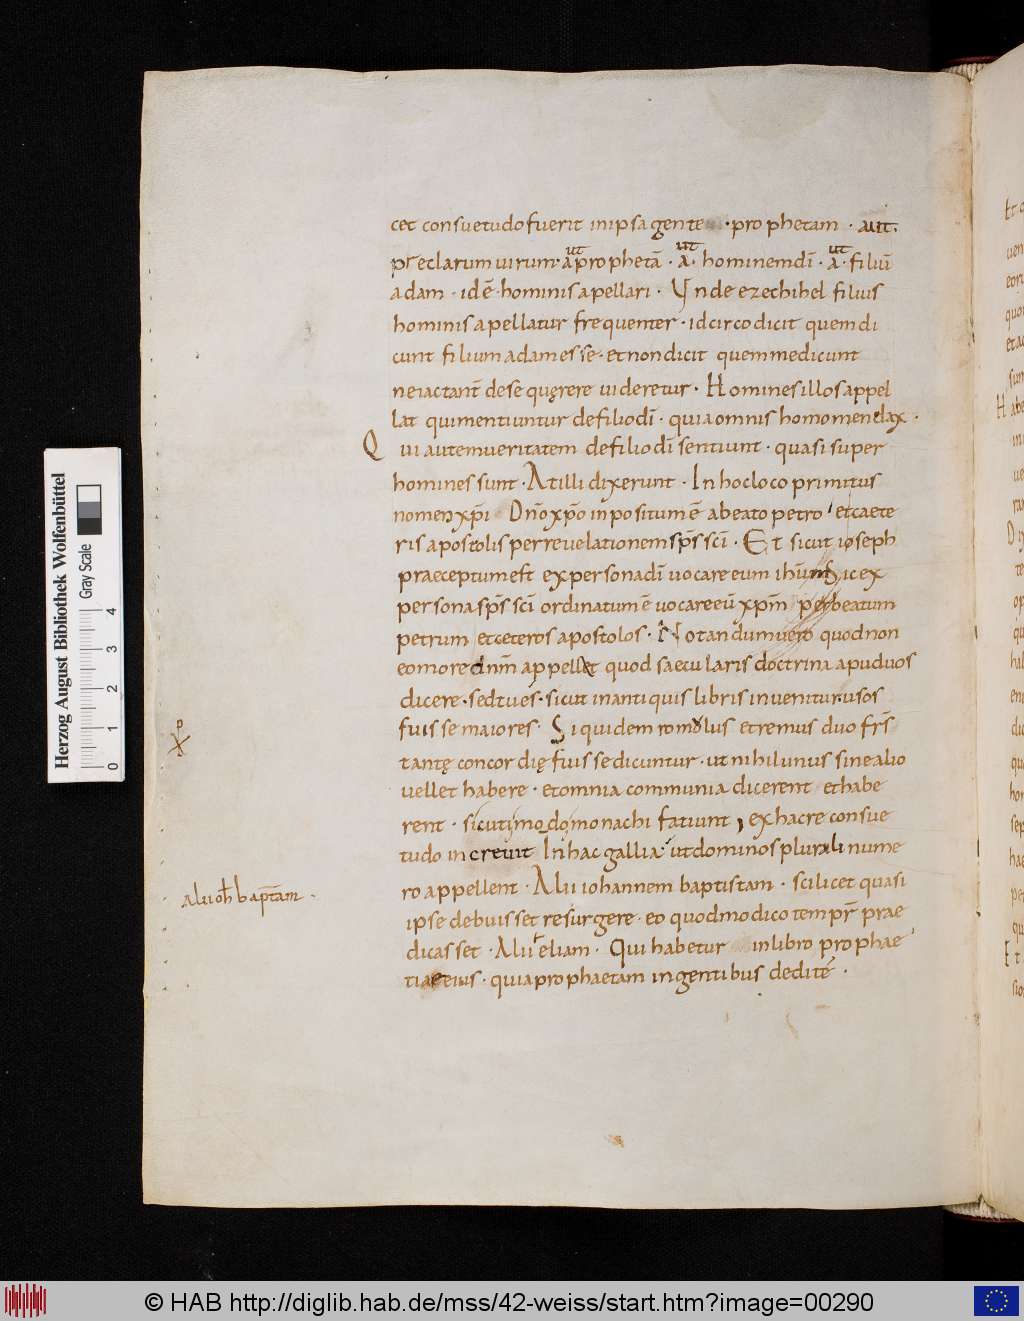 cet consuetudo fuerit in ipsa gente · prophetam · aut.
preclarum uirum · a prophetā · a · hominem dī · a · filiū
ut ut ut
adam · id ē · hominis apellari · Vnde ezechihel filius
hominis apellatur frequenter · idcirco dicit quem di
cunt filium adam esse · et non dicit quem me dicunt
ne iactant̄ de se quęrere uideretur · Homines illos appel
lat qui mentiuntur de filio dī · quia omnis homo mendax ·
Qui autem ueritatem de filio dī sentiunt · quasi super
homines sunt · At illi dixerunt · In hoc loco primitus
nomen xp̄i Dn̄o xp̄o inpositum ē a beato petro et caete
ris apostolis per reuelationem sp̄s sc̄i · Et sicut ioseph
praeceptum est ex persona dī uocare eum ih̄um hic ex
persona sp̄s sc̄i ordinatum ē uocare eū xp̄m per beatum
petrum et ceteros apostolos · Notandum uero quod non
eo more dn̄m appellet quod saecularis doctrina apud uos
dicere · sed tu es · sicut in antiquis libris inuenitur · usos
fuisse maiores · Siquidem romolus et remus duo fr̄s
tantę concordię fuisse dicuntur · ut nihil unus sine alio
uellet habere · et omnia communia dicerent et habe
rent · sicuti modo monachi faciunt ex hac re consue
tudo increuit In hac gallia · ut dominos plurali nume
ro appellent · Alii iohannem baptistam · scilicet quasi
alii oh̄ baptam ·
ipse debuisset resurgere · eo quod modico tempr̄ prae
dicasset · Alii eliam · Qui habetur in libro prophae
tiae eius · quia prophaetam in gentibus dedi te ·
Herzog August Bibliothek Wolfenbüttel
Gray Scale
0 1 2 3 4
© HAB http://diglib.hab.de/mss/42-weiss/start.htm?image=00290